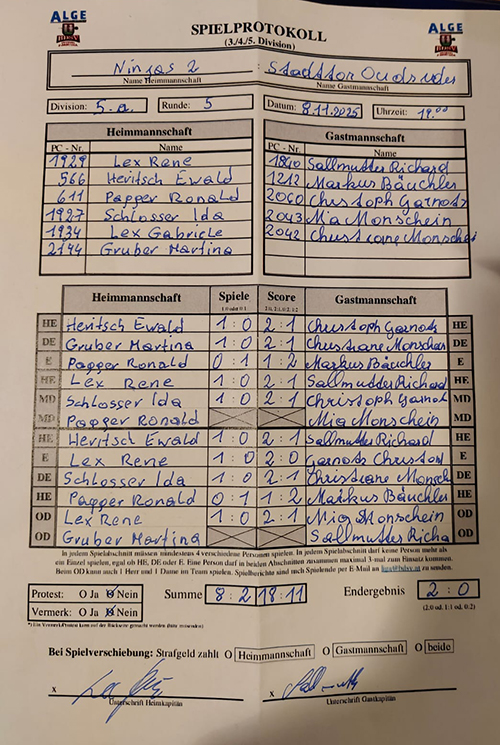 ALGE ALGE
SPIELPROTOKOLL
(3./4./5. Division)
Ninjas 2 : Stadttor Oudsuder
Name Heimmannschaft Name Gastmannschaft
Division: 5.a. Runde: 5 Datum: 8.11.2025 Uhrzeit: 19.00
Heimmannschaft Gastmannschaft
PC - Nr. Name PC - Nr. Name
1929 Lex Rene 1840 Sallmutter Richard
566 Heritsch Ewald 1212 Markus Bäuchler
611 Papper Ronald 2040 Christoph Garnotz
1927 Schlosser Ida 2043 Mia Monschein
1934 Lex Gabriele 2042 Christiane Monschei
2144 Gruber Martina
Heimmannschaft Spiele Score Gastmannschaft
1:0 oder 0:1 2:0, 2:1, 0:2, 1:2
HE Heritsch Ewald 1:0 2:1 Christoph Garnotz HE
DE Gruber Martina 1:0 2:1 Christiane Monschei DE
E Papper Ronald 0:1 1:2 Markus Bäuchler E
HE Lex Rene 1:0 2:1 Sallmutter Richard HE
MD Schlosser Ida 1:0 2:1 Christoph Garnot MD
MD Papper Ronald Mia Monschein MD
HE Heritsch Ewald 1:0 2:1 Sallmutter Richard HE
E Lex Rene 1:0 2:0 Garnotz Christoh E
DE Schlosser Ida 1:0 2:1 Christiane Monsch DE
HE Papper Ronald 0:1 1:2 Markus Bäuchler HE
OD Lex Rene 1:0 2:1 Mia Monschein OD
OD Gruber Martina Sallmutter Richa OD
In jedem Spielabschnitt müssen mindestens 4 verschiedene Personen spielen. In jedem Spielabschnitt darf keine Person mehr als
ein Einzel spielen, egal ob HE, DE oder E. Eine Person darf in beiden Abschnitten zusammen maximal 3-mal zum Einsatz kommen.
Beim OD kann auch 1 Herr und 1 Dame im Team spielen. Spielberichte sind nach Spielende per E-Mail an zu senden.
Protest: O Ja O Nein Summe 8:2 18:11 Endergebnis 2:0
Vermerk: O Ja O Nein (2:0 od. 1:1 od. 0:2)
*) Ein Vermerk/Protest kann auf der Rückseite gemacht werden (bitte ankreuzen)
Bei Spielverschiebung: Strafgeld zahlt O Heimmannschaft O Gastmannschaft O beide
x x
Unterschrift Heimkapitän Unterschrift Gastkapitän